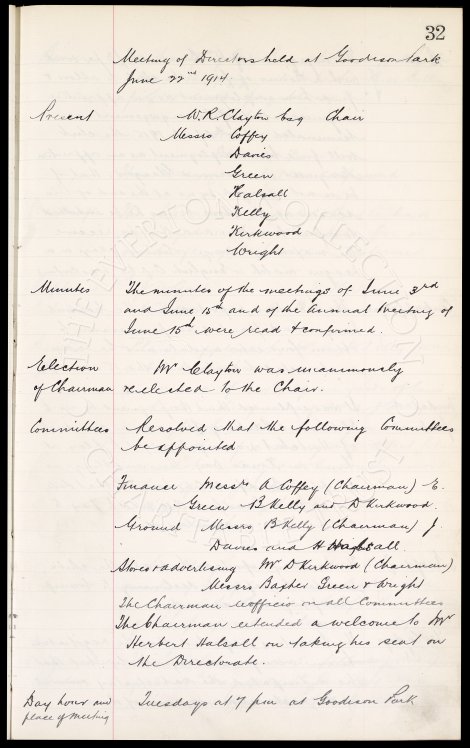 32
Meeting of Directors held at Goodison Park
June 22nd 1914.
Present W.R. Clayton Esq Chair
Messrs Coffey
Davies
Green
Halsall
Kelly
Kirkwood
Wright
Minutes The minutes of the meetings of June 3rd
and June 15th and of the Annual Meeting of
June 15th were read & confirmed.
Election Mr Clayton was unanimously
of Chairman re-elected to the Chair.
Committees Resolved that the following Committees
be appointed
Finance Messrs A Coffey (Chairman) E.
Green B Kelly and D Kirkwood.
Ground Messrs B Kelly (Chairman) J.
Davies and H Halsall.
Stores & advertising Mr D Kirkwood (Chairman)
Messrs Baxter Green & Wright
The Chairman exofficio on all Committees
The Chairman extended a welcome to Mr
Herbert Halsall on taking his seat on
the Directorate.
Day hour and Tuesdays at 7 pm at Goodison Park
place of meeting
THE EVERTON COLLECTION
CHARITABLE TRUST